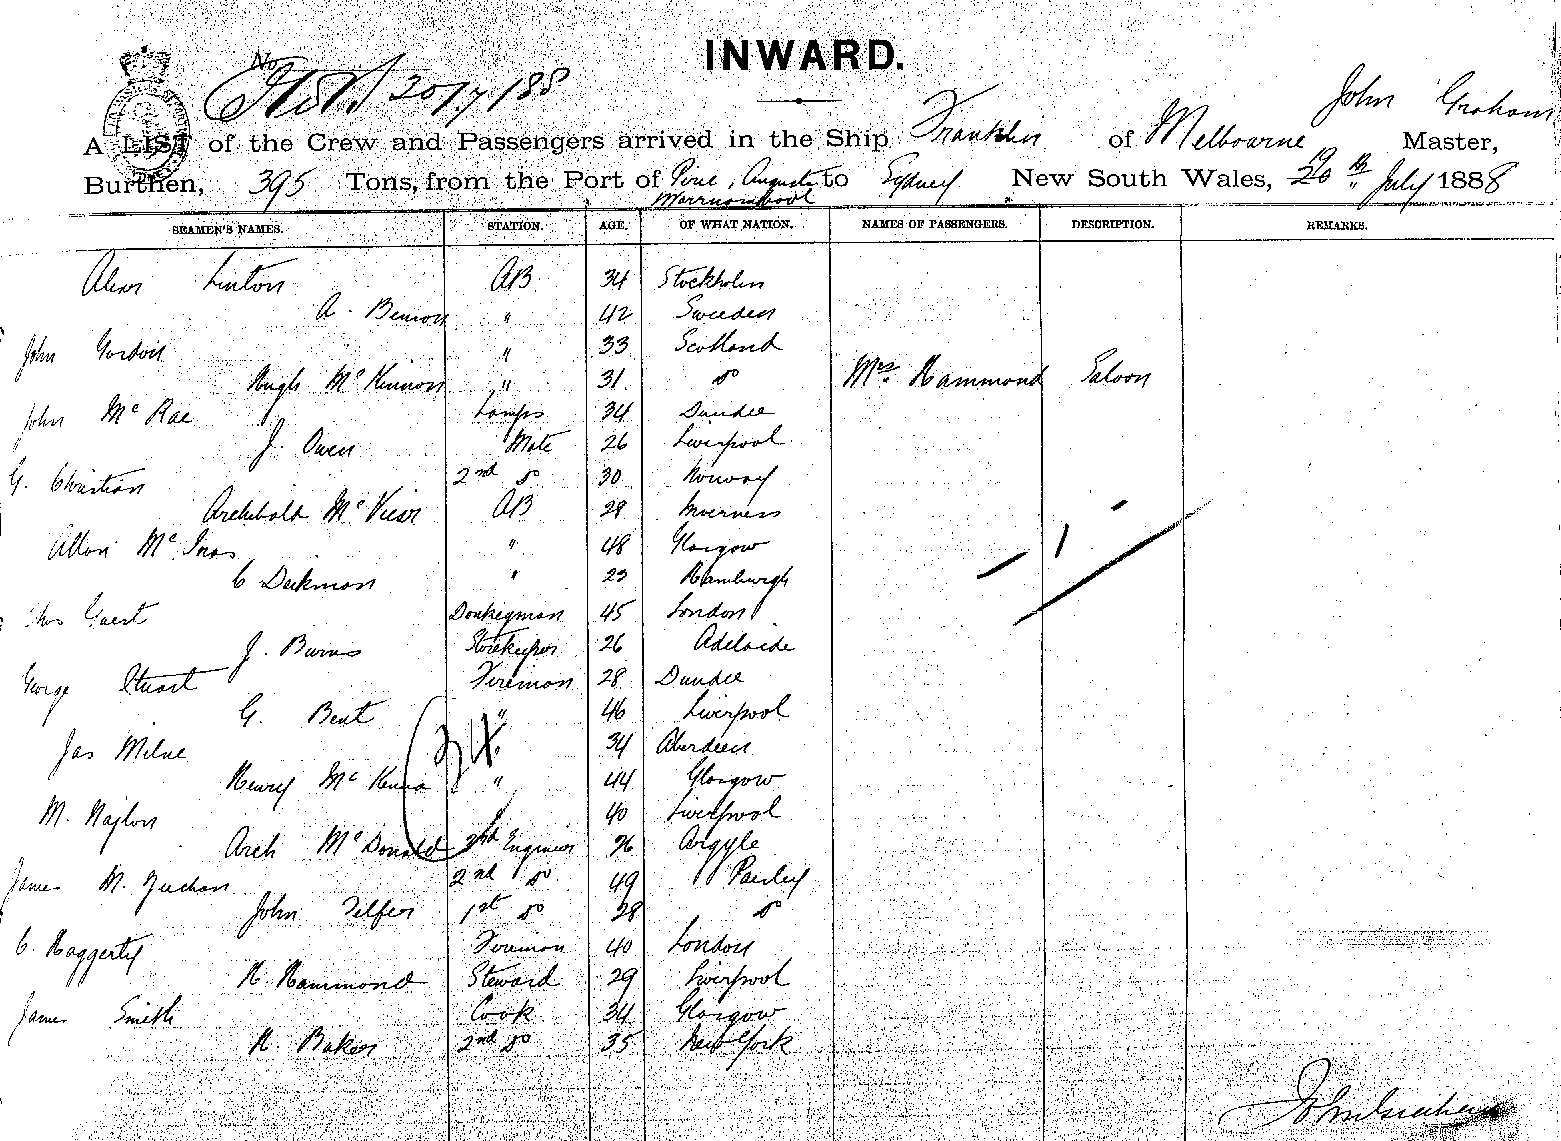 INWARD.
No
20/7/188
John Graham
A LIST of the Crew and Passengers arrived in the Ship Franklin of Melbourne Master,
Burthen, 395 Tons, from the Port of Pirie, Augusta to Sydney New South Wales, 20 th July 1888
Warrnambool
SEAMEN'S NAMES. STATION. AGE. OF WHAT NATION. NAMES OF PASSENGERS. DESCRIPTION. REMARKS.
Linton AB 34 Stockholm
A. Benson " 42 Sweden
John Gordon " 33 Scotland
Hugh McKinnon " 31 do Mrs. Hammond Saloon
John McRae Lamps 34 Dundee
J. Owen Mate 26 Liverpool
G. Christian 2nd do 30 Norway
Archibald Mc AB 29 Inverness
Allan Mc " 48 Glasgow
C Deckman " 23 Hamburgh
Guest Donkeyman 45 London
J. Burns Storekeeper 26 Adelaide
George Stuart Fireman 28 Dundee
G. Bent " 46 Liverpool
Jas Milne " 34 Aberdeen
Henry McKenna " 44 Glasgow
24
M. Naylon " 40 Liverpool
Arch McDonald 3rd Engineer 26 Argyle
James M. Geechan 2nd do 49 Paisley
John Telfer 1st do 28 do
C. Haggerty Fireman 40 London
H. Hammond Steward 29 Liverpool
James Smith Cook 34 Glasgow
H. Baker 2nd do 35 New York
John Graham